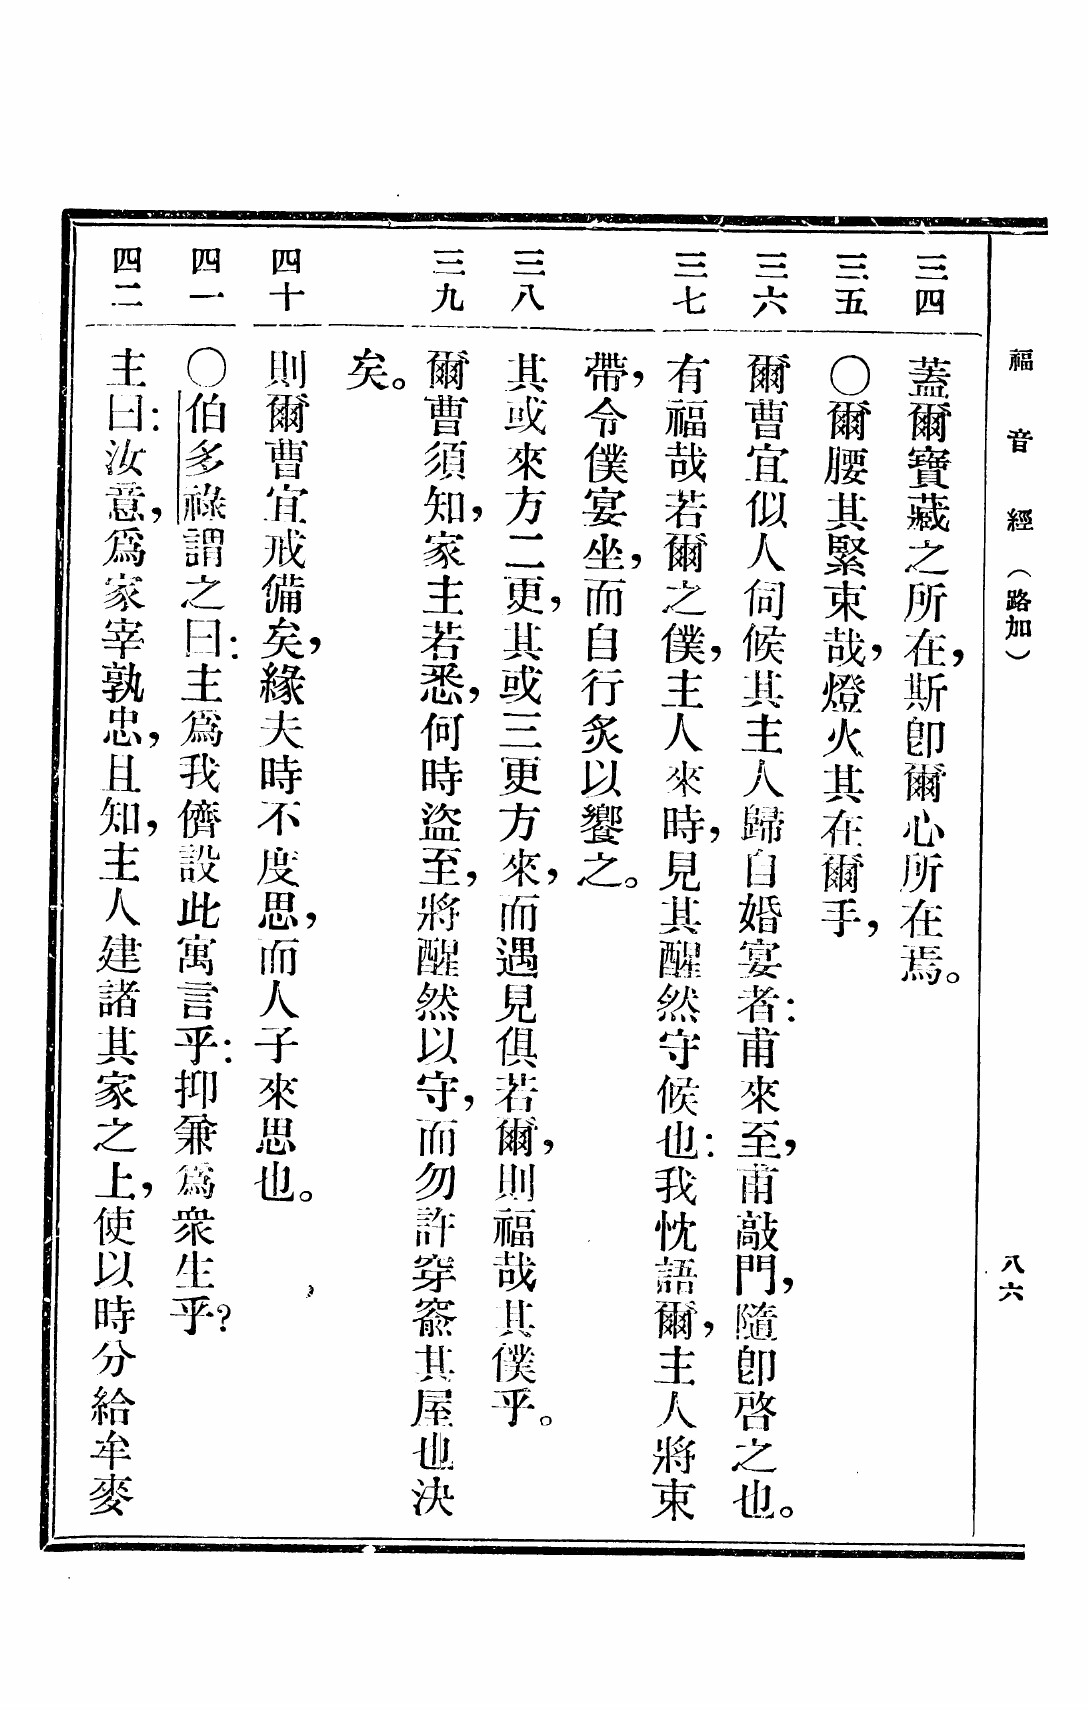 福音經（路加）
八六
三四
蓋爾寶藏之所在，斯卽爾心所在焉。
三五
〇爾腰其緊束哉，燈火其在爾手，
三六
爾曹宜似人伺候其主人歸自婚宴者：甫來至，甫敲門，隨卽啓之也。
三七
有福哉若爾之僕，主人來時，見其醒然守候也：我忱語爾，主人將束
帶，令僕宴坐，而自行炙以饗之。
三八
其或來方二更，其或三更方來，而遇見俱若爾，則福哉其僕乎。
三九
爾曹須知，家主若悉，何時盜至，將醒然以守，而勿許穿窬其屋也決
矣。
四十
則爾曹宜戒備矣，緣夫時不度思，而人子來思也。
四一
〇伯多祿謂之曰：主爲我儕設此寓言乎：抑兼爲衆生乎？
四二
主曰：汝意，爲家宰孰忠，且知，主人建諸其家之上，使以時分給牟麥